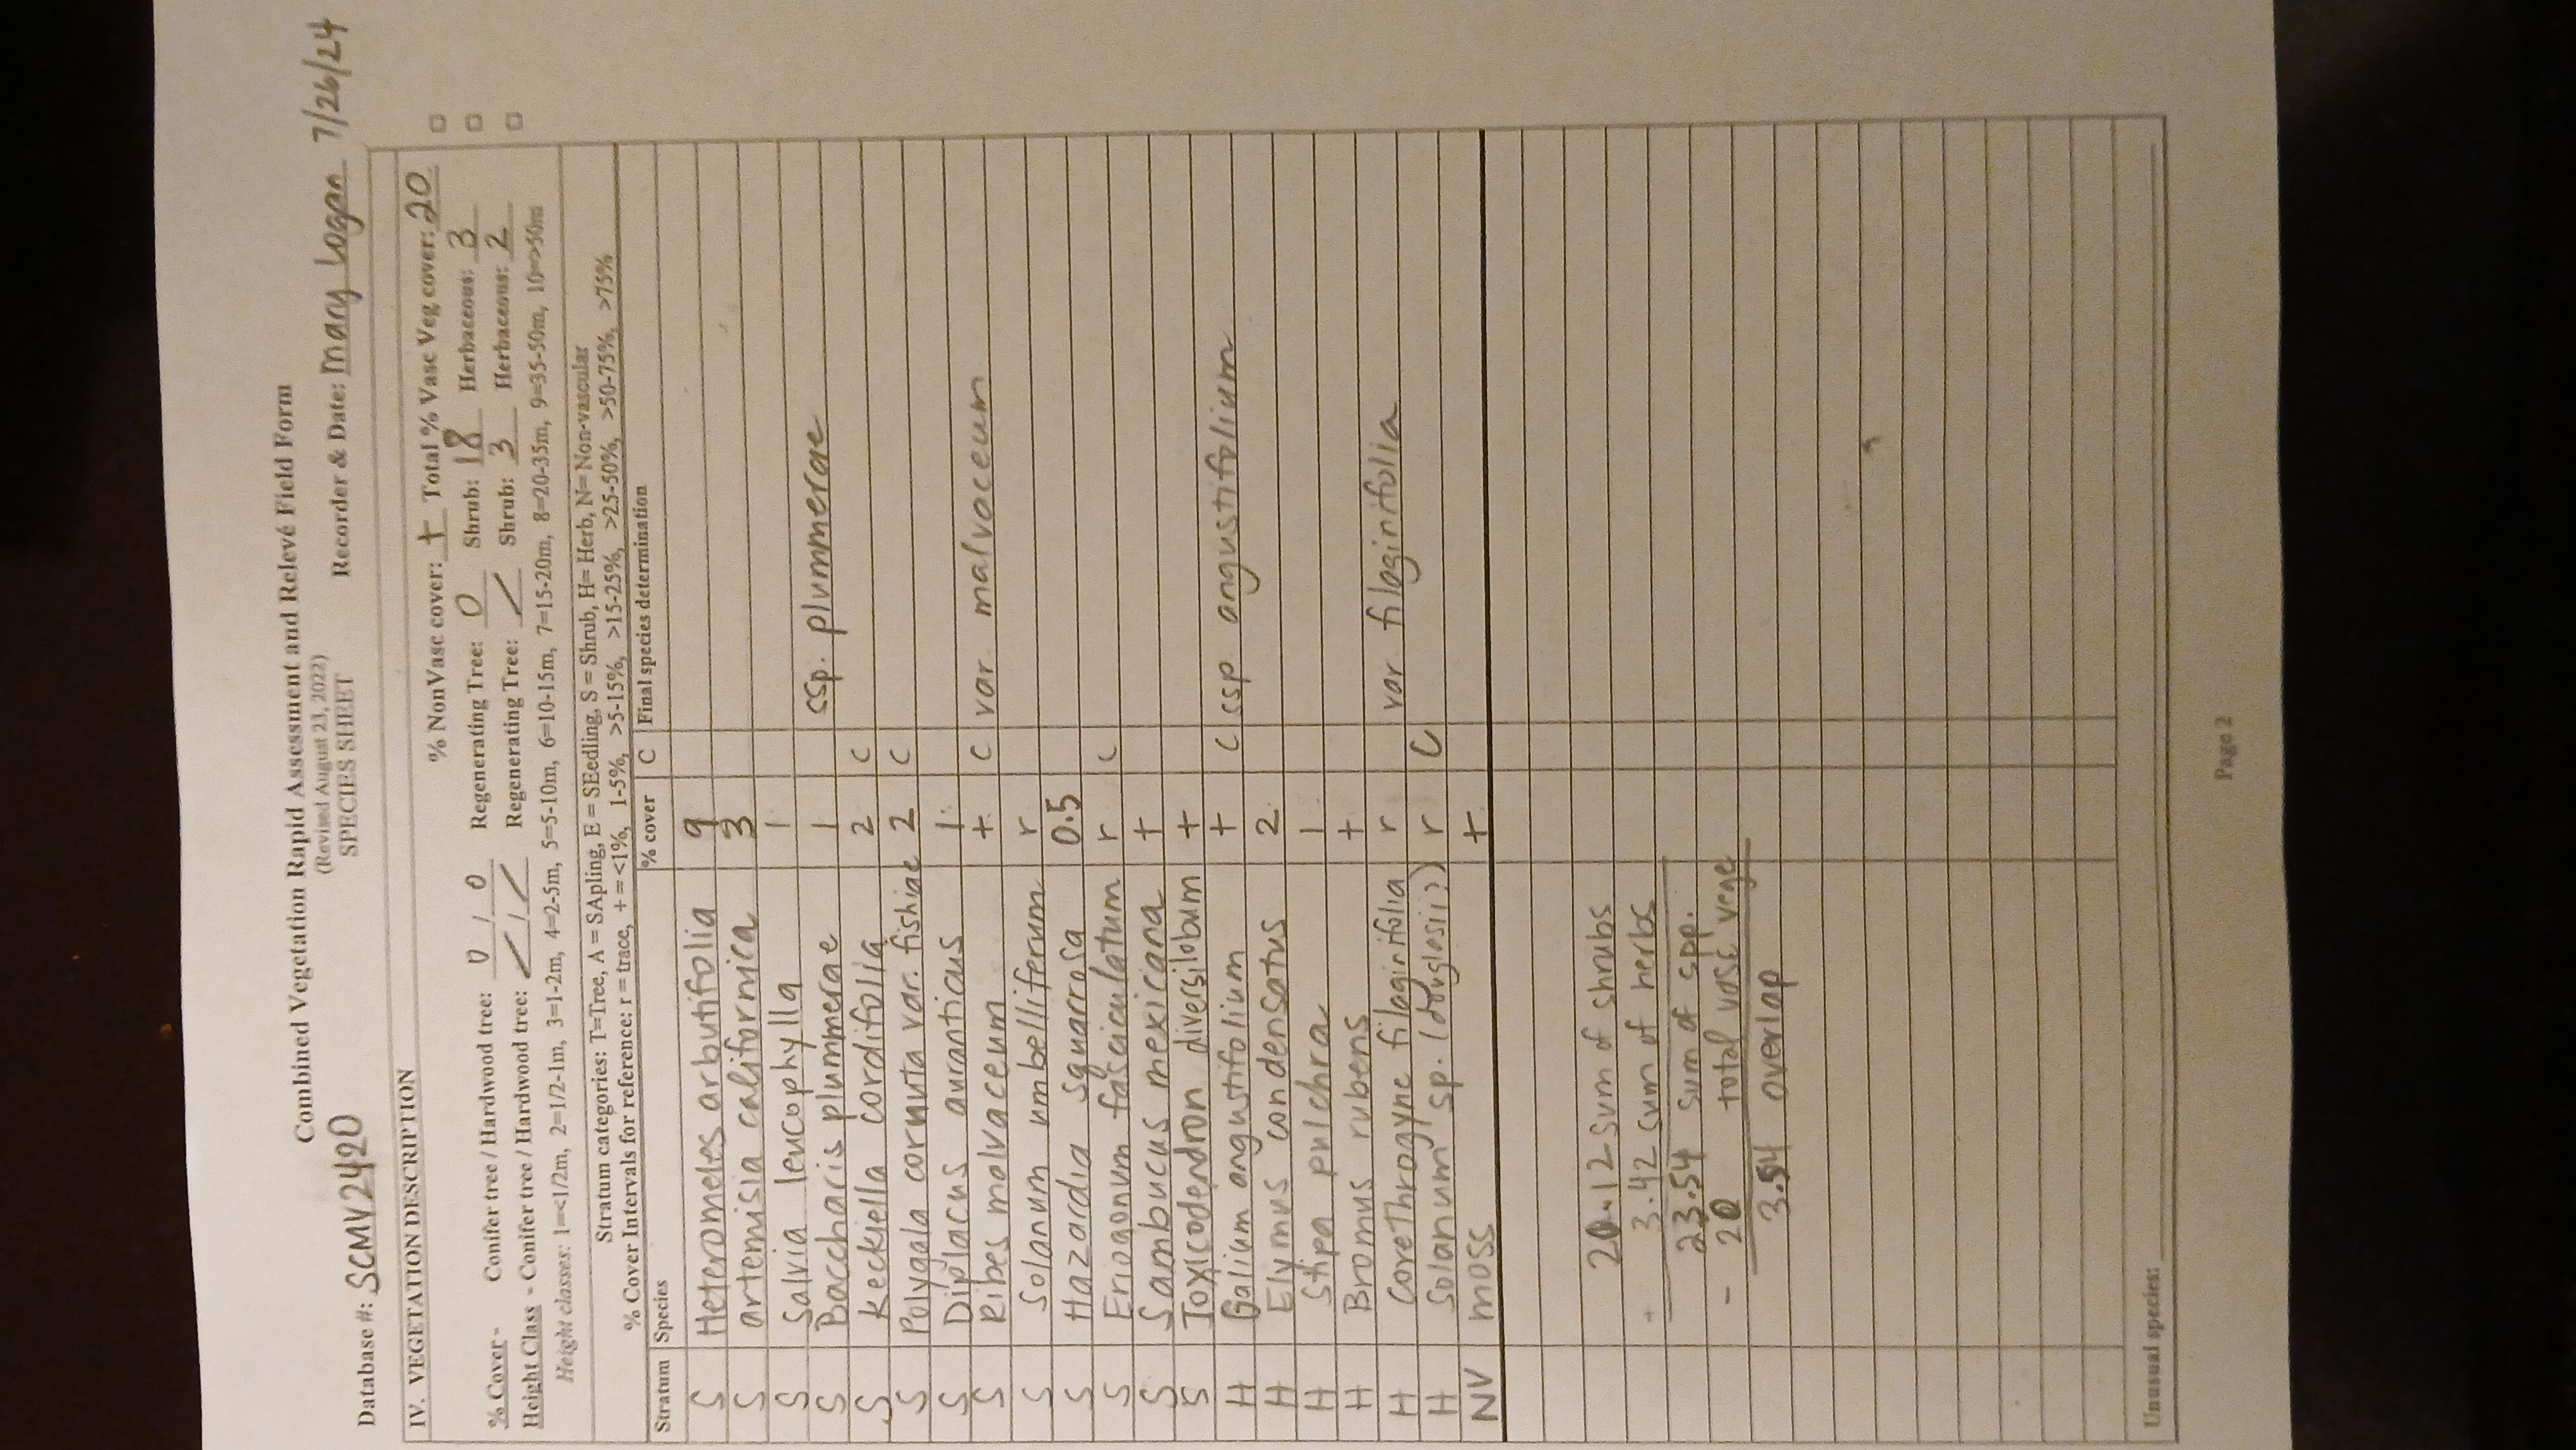 Combined Vegetation Rapid Assessment and Relevé Field Form
(Revised August 23, 2022)
SPECIES SHEET
Database #: SCMV2420 Recorder & Date: Mary Logan 7/26/24
IV. VEGETATION DESCRIPTION
% NonVasc cover: + Total % Vasc Veg cover: 20
% Cover - Conifer tree / Hardwood tree: 0 / 0 Regenerating Tree: 0 Shrub: 18 Herbaceous: 3
Height Class - Conifer tree / Hardwood tree: / / / Regenerating Tree: / Shrub: 3 Herbaceous: 2
Height classes: 1=<1/2m, 2=1/2-1m, 3=1-2m, 4=2-5m, 5=5-10m, 6=10-15m, 7=15-20m, 8=20-35m, 9=35-50m, 10=>50m
Stratum categories: T=Tree, A = SApling, E = SEedling, S = Shrub, H= Herb, N= Non-vascular
% Cover Intervals for reference: r = trace, + = <1%, 1-5%, >5-15%, >15-25%, >25-50%, >50-75%, >75%
Stratum Species % cover C Final species determination
S Heteromeles arbutifolia 9
S artemisia californica 3
S Salvia leucophylla 1
S Baccharis plummerae 1 ssp. plummerae
S Keckiella cordifolia 2 C
S Polygala cornuta var. fishiae 2 C
S Diplacus aurantiacus 1
S Ribes malvaceum + C var. malvoceum
S Solanum umbelliferum r
S Hazardia squarrosa 0.5
S Eriogonum fasciculatum r C
S Sambucus mexicana +
S Toxicodendron diversilobum +
H Galium angustifolium + C ssp. angustifolium
H Elymus condensatus 2
H Stipa pulchra 1
H Bromus rubens +
H Corethrogyne filaginifolia r var. filaginifolia
H Solanum sp. (douglasii?) r C
NV moss +
20.12-sum of shrubs
+ 3.42-sum of herbs
23.54 sum of spp.
- 20 total vasc vege
3.54 overlap
Unusual species:
Page 2